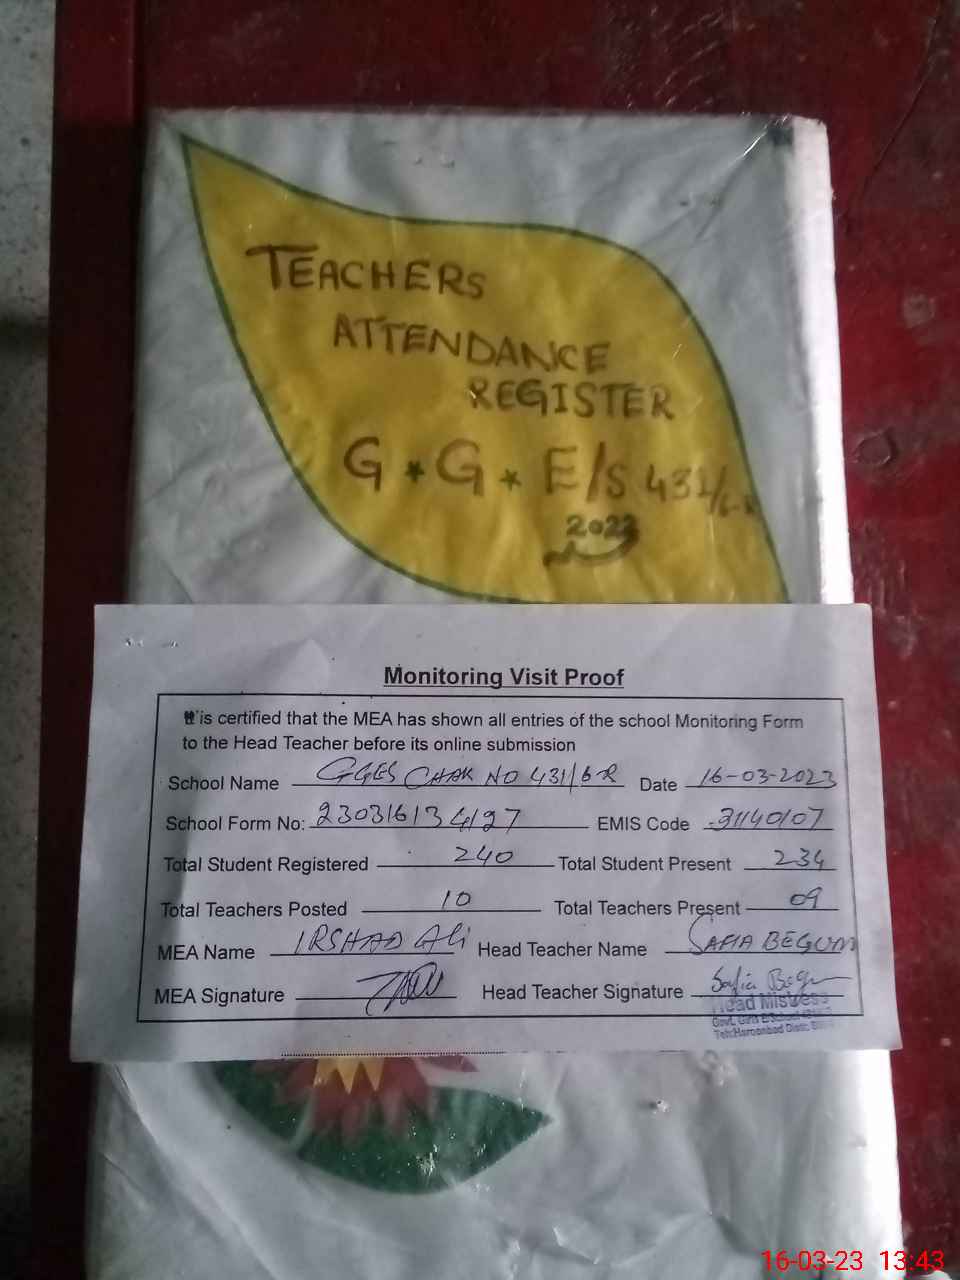 TEACHERS
ATTENDANCE
REGISTER
G * G * E/S 431/6-R
2023
Monitoring Visit Proof
It is certified that the MEA has shown all entries of the school Monitoring Form
to the Head Teacher before its online submission
School Name GGES CHAK NO 431/6-R Date 16-03-2023
School Form No: 230316134127 EMIS Code 31140107
Total Student Registered 240 Total Student Present 234
Total Teachers Posted 10 Total Teachers Present 09
MEA Name IRSHAD Ali Head Teacher Name SAFIA BEGUM
MEA Signature Head Teacher Signature Safia Begum
Head Mistress
Govt. Girls E/School
Teh: Haroonabad Distt:
16-03-23 13:43